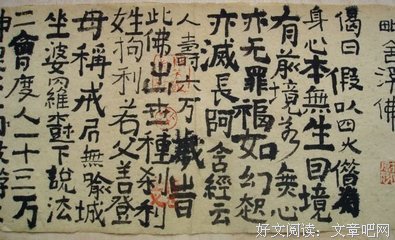 毗舍浮佛
偈曰假以四大借為
身心本無生因境
有前境若無心
亦无罪福如幻起
亦滅長阿含經云
人壽六万歲旹
此佛出世種刹利
姓拘利若父善登
母稱戒居無喻城
坐婆羅樹下說法
二會度人一十三万
好文阅读：文章吧网